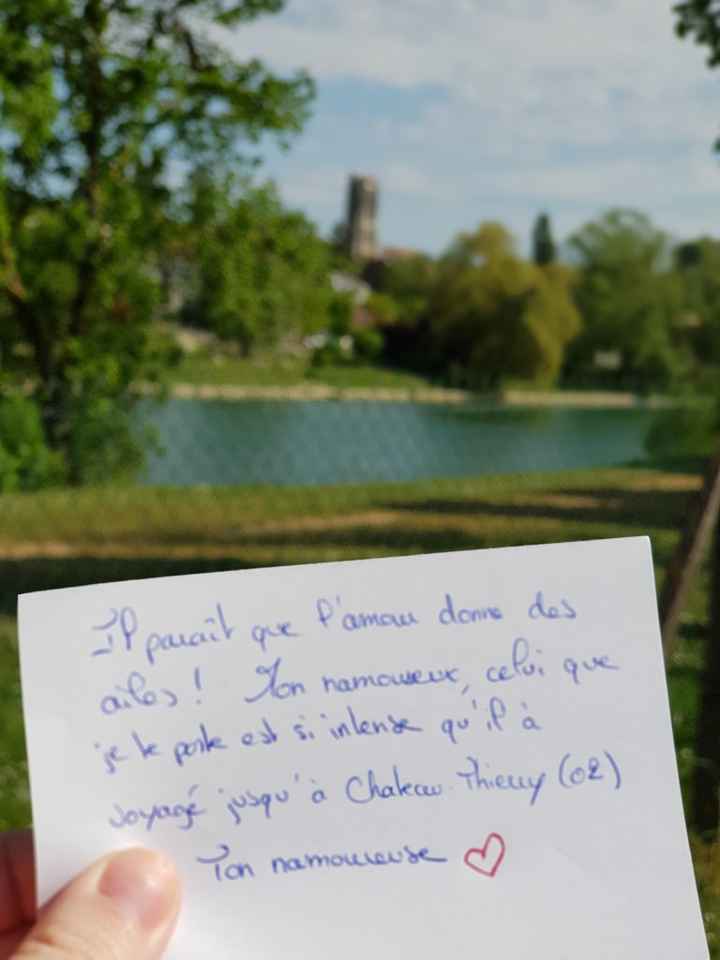 Il paraît que l'amour donne des
ailes ! Mon namoureux, celui que
je te porte est si intense qu'il à
voyagé jusqu'à Chateau-Thierry (02)
Ton namoureuse